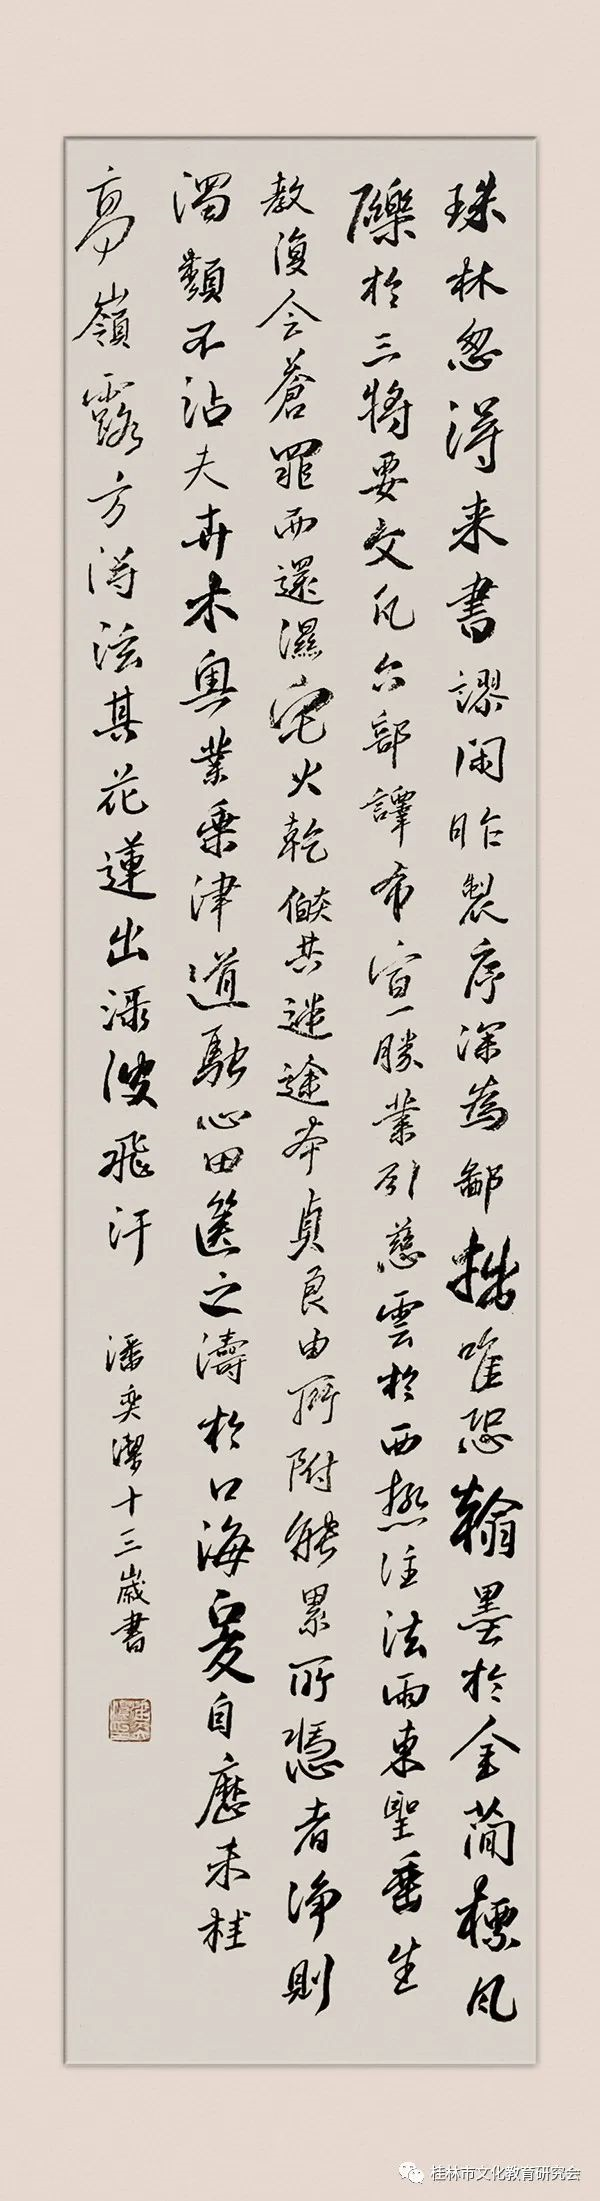 珠林忽得来書謬闻昨製序深為鄙拙唯恐翰墨於金簡標凡
礫於三將要文凡六部譯布宣一勝業引慈雲於西極注法雨東聖垂生
教復合蒼罪而還濕宅火乾燄共迷途本貞良由所附能累所憑者淨則
濁類不沾夫卉木奥業乘津道馳心田篋之濤於口海爰自歷未桂
高嶺露方得泫其花蓮出淥波飛汙
潘奕潔十三歲書
桂林市文化教育研究会